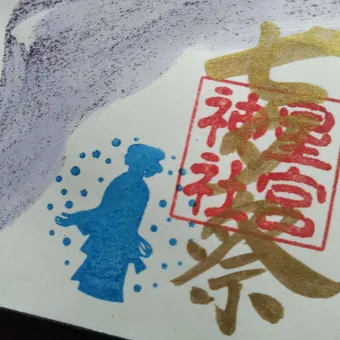 七夕祭
星宮
神社